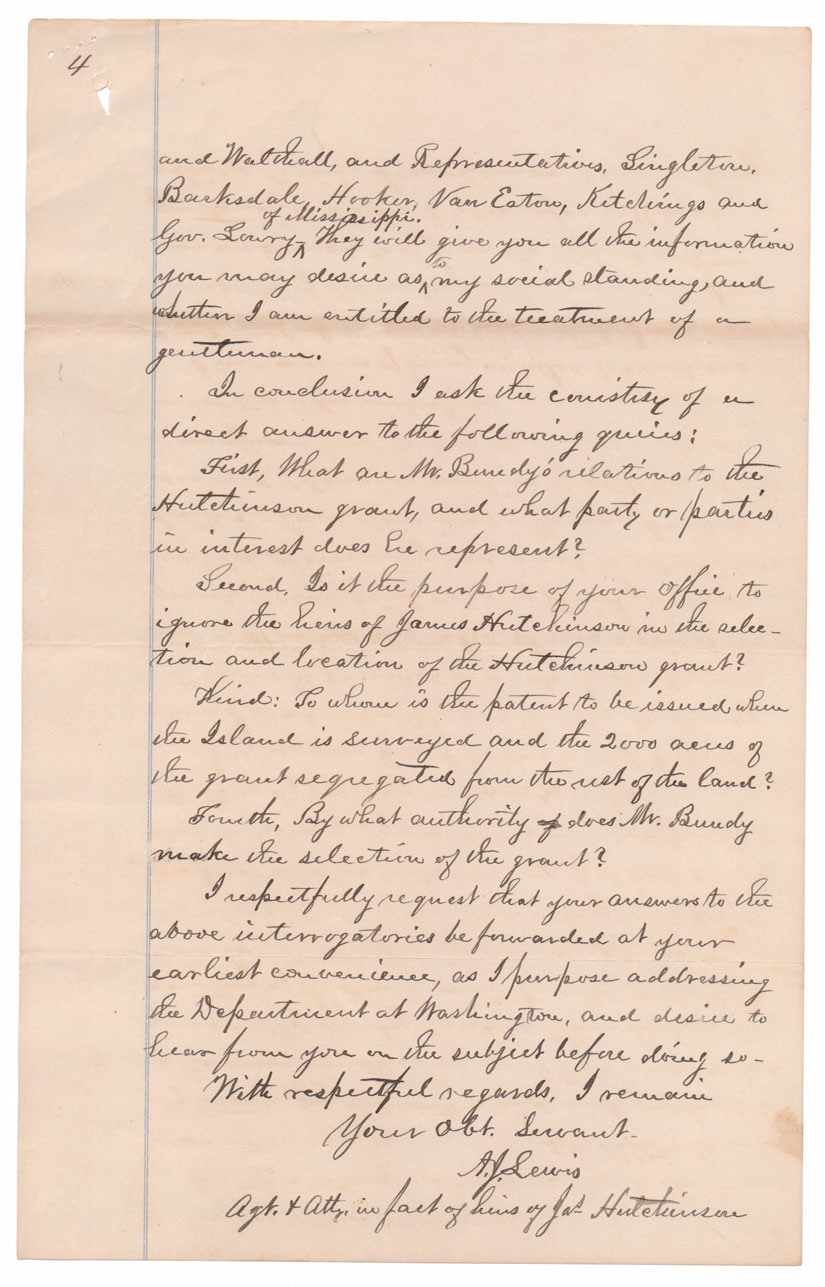 4
and Walthall, and Representatives, Singleton,
Barksdale, Hooker, Van Eaton, Kitchings and
of Mississippi.
Gov. Lowry ^ They will give you all the information
you may desire as ^ to my social standing, and
whether I am entitled to the treatment of a
gentleman.
In conclusion I ask the courtisy of a
direct answer to the following queries:
First, What are Mr. Bundy's relations to the
Hutchinson grant, and what party or parties
in interest does he represent?
Second, Is it the purpose of your office to
ignore the heirs of James Hutchinson in the selec-
tion and location of the Hutchinson grant?
Third: To whom is the patent to be issued when
the Island is surveyed and the 2000 acres of
the grant segregated from the rest of the land?
Fourth, By what authority of does Mr. Bundy
make the selection of the grant?
I respectfully request that your answers to the
above interrogatories be forwarded at your
earliest convenience, as I purpose addressing
the Department at Washington, and desire to
hear from you on the subject before doing so-
With respectful regards, I remain
Your Obt. Servant.
A.J. Lewis
Agt. & Atty. in fact of heirs of Jas Hutchinson